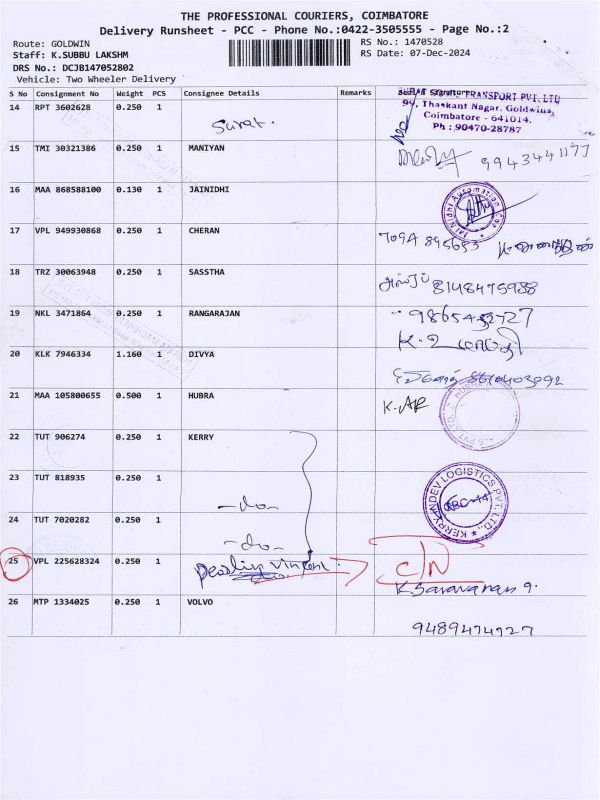 THE PROFESSIONAL COURIERS, COIMBATORE
Delivery Runsheet - PCC - Phone No.:0422-3505555 - Page No.:2
Route: GOLDWIN
RS No.: 1470528
Staff: K.SUBBU LAKSHM
RS Date: 07-Dec-2024
DRS No.: DCJB147052802
Vehicle: Two Wheeler Delivery
S No Consignment No Weight PCS Consignee Details Remarks
14 RPT 3602628 0.250 1 Surat. TRANSPORT PVT. LTD
99, Thaskant Nagar, Goldwins,
Coimbatore - 641014.
Ph : 90470-28787
15 TMI 30321386 0.250 1 MANIYAN 9943441177
16 MAA 868588100 0.130 1 JAINIDHI Jai Nidhi Automation
17 VPL 949930868 0.250 1 CHERAN
18 TRZ 30063948 0.250 1 SASSTHA 8148475988
19 NKL 3471864 0.250 1 RANGARAJAN
20 KLK 7946334 1.160 1 DIVYA
21 MAA 105800655 0.500 1 HUBRA K. AR
22 TUT 906274 0.250 1 KERRY
23 TUT 818935 0.250 1 KERRY INDEV LOGISTICS PVT. LTD.
-do-
24 TUT 7020282 0.250 1
-do-
25 VPL 225628324 0.250 1 C/N
K. Saravanan
26 MTP 1334025 0.250 1 VOLVO
9489474727